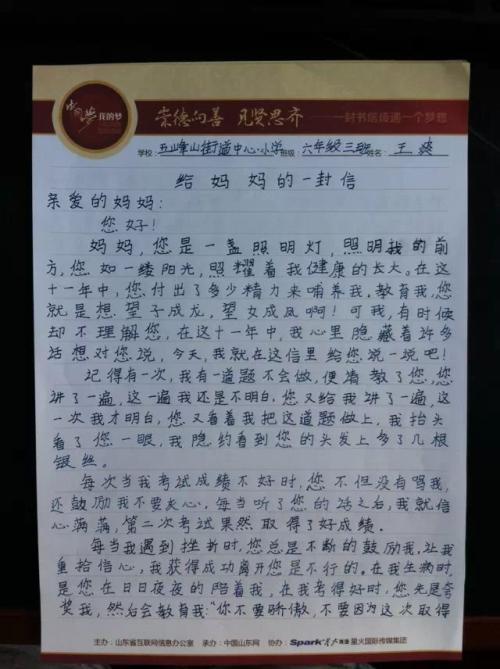 中国梦 我的梦
崇德向善 见贤思齐 ——一封书信传递一个梦想
学校:五峰山街道中心小学 班级:六年级三班 姓名:王
给妈妈的一封信
亲爱的妈妈:
您好!
妈妈,您是一盏照明灯,照明我的前
方,您如一缕阳光,照耀着我健康的长大。在这
十一年中,您付出了多少精力来哺养我,教育我,您
就是想望子成龙,望女成凤啊!可我,有时候
却不理解您,在这十一年中,我心里隐藏着许多
话想对您说,今天,我就在这信里给您说一说吧!
记得有一次,我有一道题不会做,便请教了您,您
讲了一遍,这一遍我还是不明白,您又给我讲了一遍,这
一次我才明白,您又看着我把这道题做上,我抬头
看了您一眼,我隐约看到您的头发上多了几根
银丝。
每次当我考试成绩不好时,您不但没有吗我,
还鼓励我不要灰心,每当听了您的话之后,我就信
心满满,第二次考试果然取得了好成绩。
每当我遇到挫折时,您总是不断的鼓励我,让我
重拾信心,我获得成功离开您是不行的,在我生病时,
是您在日日夜夜的陪着我,在我考得好时,您先是会
奖我,然后会教育我:“你不要骄傲,不要因为这次取得
主办:山东省互联网信息办公室 承办:中国山东网 协办:Spark 星火国际传媒集团